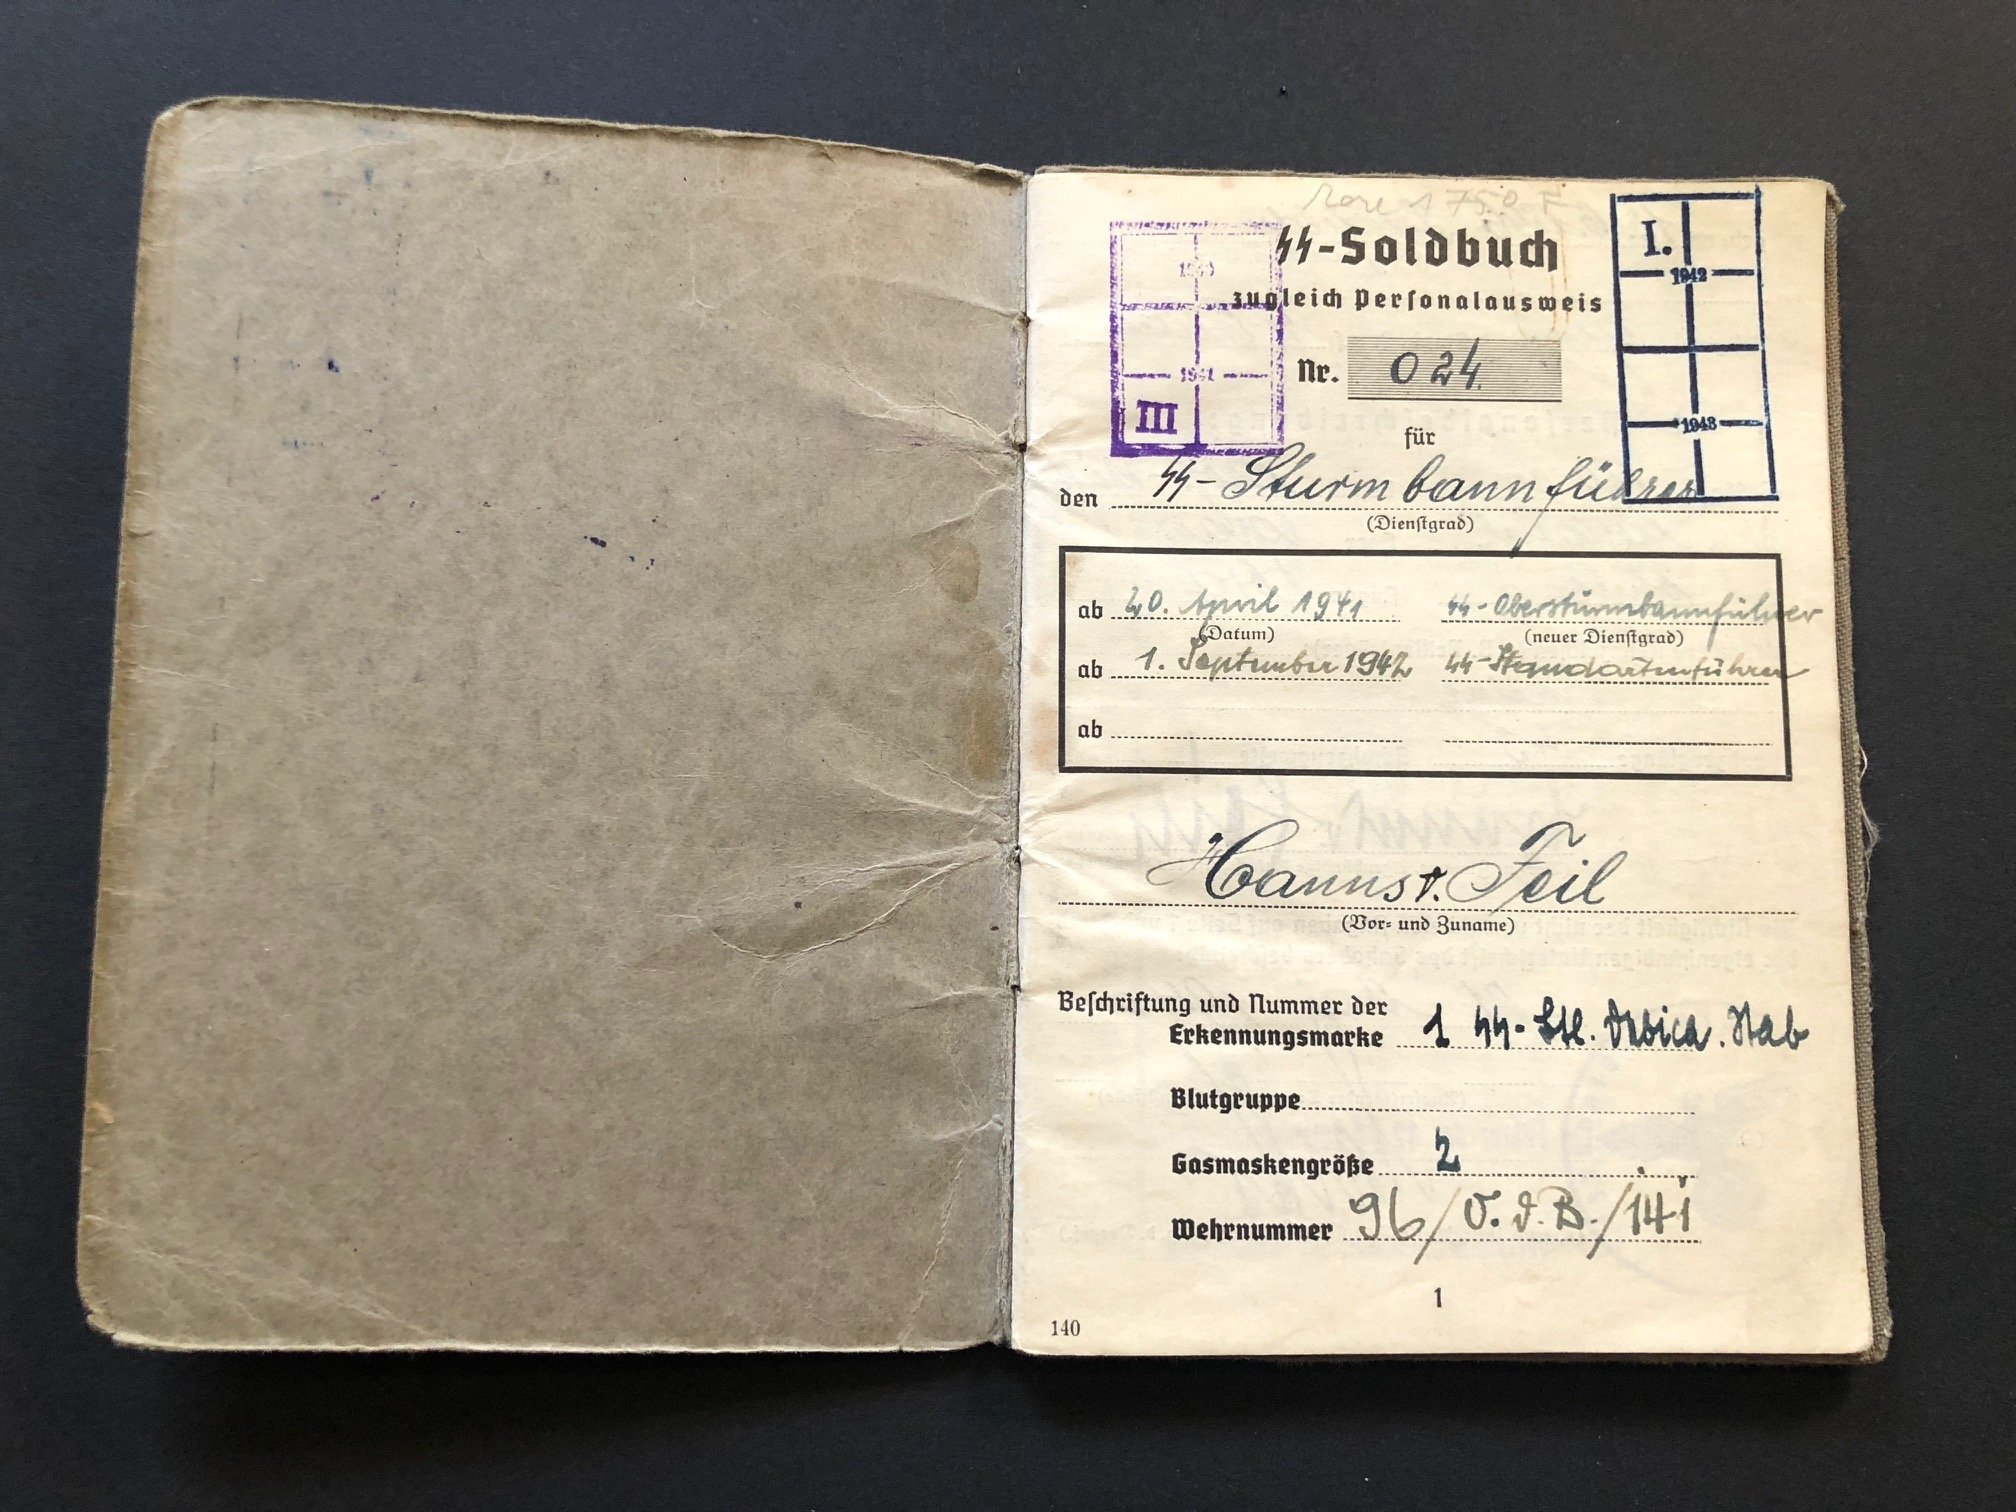 ϟϟ-Soldbuch
zugleich Personalausweis
Nr. 024.
für
den ϟϟ-Sturmbannführer
(Dienstgrad)
ab 20. April 1941 ϟϟ-Obersturmbannführer
(Datum) (neuer Dienstgrad)
ab 1. September 1942 ϟϟ-Standartenführer
ab
Hanns Feil
(Vor- und Zuname)
Beschriftung und Nummer der
Erkennungsmarke 1 ϟϟ-
Blutgruppe
Gasmaskengröße 2
Wehrnummer 96/V.d.B./141
1
140
III
1941
I.
1942
1943